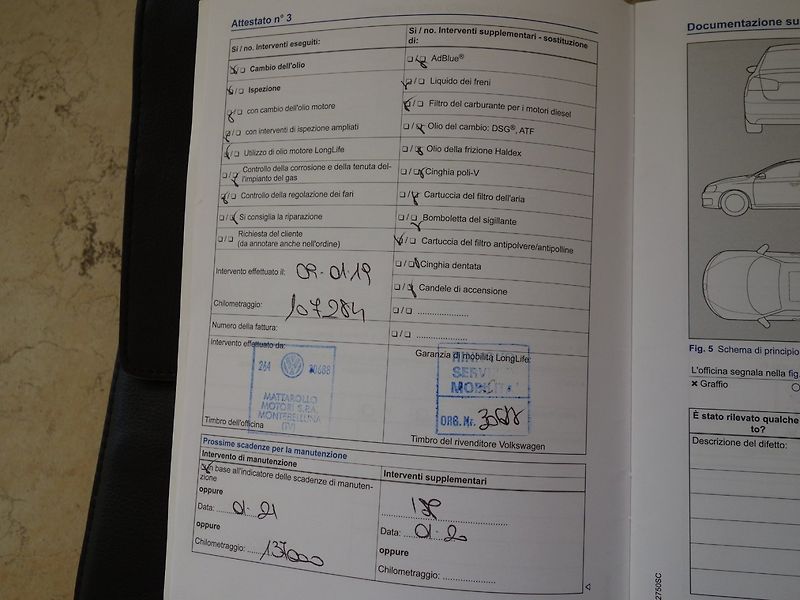 Attestato n° 3
Si / no. Interventi eseguiti:
☐/☐ Cambio dell'olio
☐/☐ Ispezione
☐/☐ con cambio dell'olio motore
☐/☐ con interventi di ispezione ampliati
☐/☐ Utilizzo di olio motore LongLife
☐/☐ Controllo della corrosione e della tenuta del-
l'impianto del gas
☐/☐ Controllo della regolazione dei fari
☐/☐ Si consiglia la riparazione
☐/☐ Richiesta del cliente
(da annotare anche nell'ordine)
Intervento effettuato il: 09-01-19
Chilometraggio: 107284
Numero della fattura:
Intervento effettuato da:
MATTAROLLO
MOTORI S.P.A.
MONTEBELLUNA
(TV)
Timbro dell'officina
Si / no. Interventi supplementari - sostituzione
di:
☐/☐ AdBlue®
☐/☐ Liquido dei freni
☐/☐ Filtro del carburante per i motori diesel
☐/☐ Olio del cambio: DSG®, ATF
☐/☐ Olio della frizione Haldex
☐/☐ Cinghia poli-V
☐/☐ Cartuccia del filtro dell'aria
☐/☐ Bomboletta del sigillante
☐/☐ Cartuccia del filtro antipolvere/antipolline
☐/☐ Cinghia dentata
☐/☐ Candele di accensione
☐/☐ ....................
☐/☐ ....................
Garanzia di mobilità LongLife:
SERV
MOBILITA'
ORG. Nr.
Timbro del rivenditore Volkswagen
Prossime scadenze per la manutenzione
Intervento di manutenzione
In base all'indicatore delle scadenze di manuten-
zione
oppure
Data: 01-21
oppure
Chilometraggio: 137000
Interventi supplementari
Data: 01-20
oppure
Chilometraggio: ....................
Documentazione su
Fig. 5 Schema di principio
L'officina segnala nella fig.
✖ Graffio
È stato rilevato qualche
to?
Descrizione del difetto:
2750SC